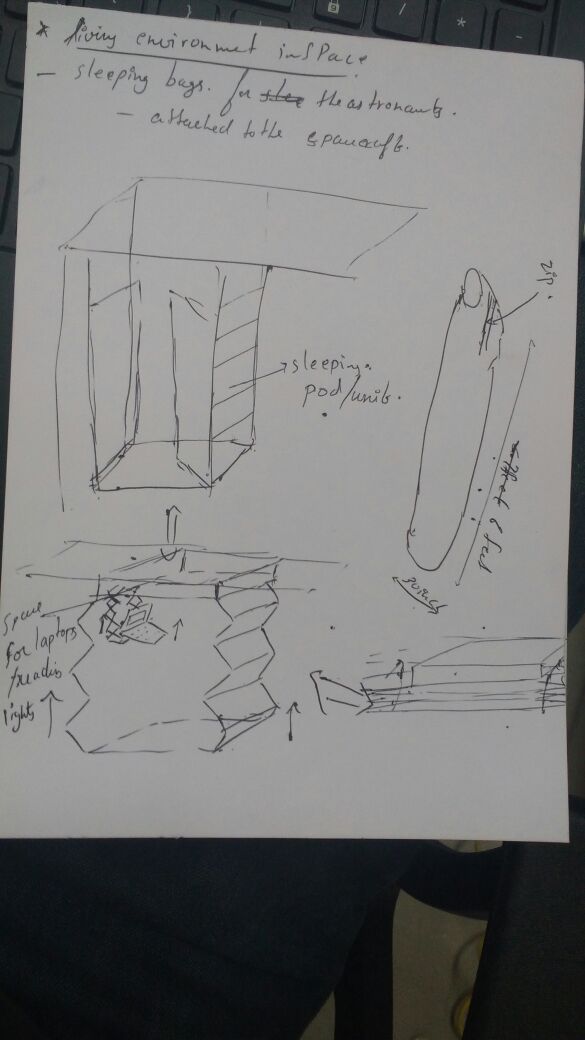 * living environment in space
- sleeping bags. for the astronauts.
- attached to the spacecraft.
zip.
sleeping
pod/unit.
6 feet
Space
for laptops
/reading
lights